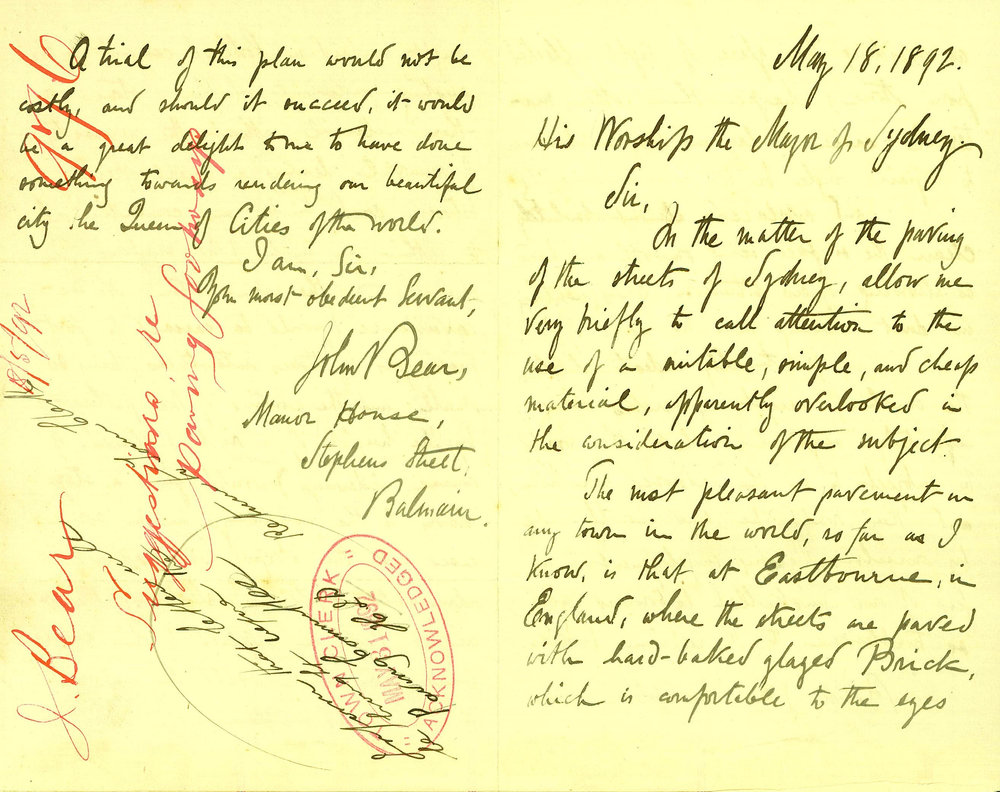 May 18, 1892.
His Worship the Mayor of Sydney.
Sir,
In the matter of the paving
of the streets of Sydney, allow me
very briefly to call attention to the
use of a suitable, simple, and cheap
material, apparently overlooked in
the consideration of the subject.
The most pleasant pavement in
any town in the world, so far as I
know, is that at Eastbourne, in
England, where the streets are paved
with hard-baked glazed Brick,
which is comfortable to the eyes
A trial of this plan would not be
costly, and should it succeed, it would
be a great delight to me to have done
something towards rendering our beautiful
city the Queen of Cities of the world.
I am, Sir,
Your most obedient Servant,
John Bear,
Manor House,
Stephens Street,
Balmain.
J. Bear
Suggestions re
paving footways
18/5/92
TOWN CLERK
MAY 31 1892
"ACKNOWLEDGED"